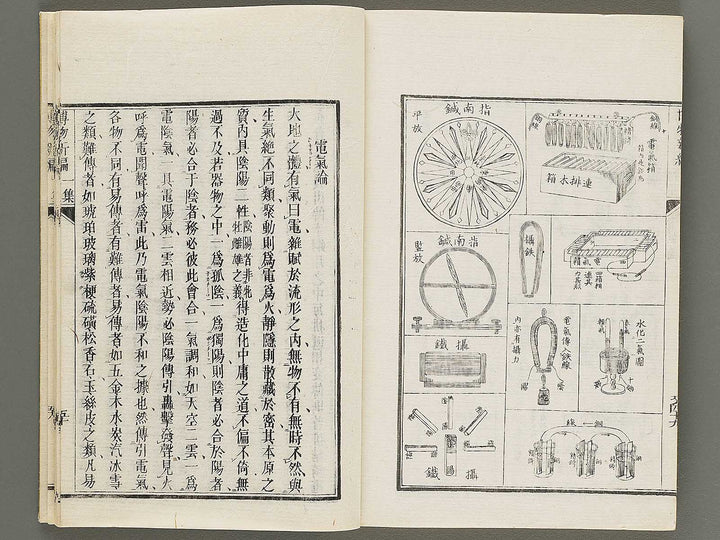 指南鍼
平放
銅線
電氣箱
連排水箱
指南鍼
豎放
攝鐵
電氣箱
水化二氣圖
電氣傳入鉄線
內亦有攝力
攝鐵
攝鐵
銅線
電氣論
大地之體有氣曰電雜賦於流形之內無物不有無時不然與
生氣絕不同類聚動則為電為火靜隱則散藏於密其本原之
質內具陰陽二性陰陽者非牝牡雌雄之義得造化中庸之道不偏不倚無
過不及若器物之中一為孤陰一為獨陽則陰者必合於陽者
陽者必合于陰者務必彼此會合一氣調和如天空二雲一為
電陰氣一具電陽氣二雲相近勢必陰陽傳引轟擊發聲見火
呼為電聞聲呼為雷此乃電氣陰陽不和之據也然傳引電氣
各物不同有易傳者有難傳者易傳者如五金木水炭汽冰雪
之類難傳者如琥珀玻璃紫梗硫磺松香石玉絲皮之類凡易
博物新編 一集